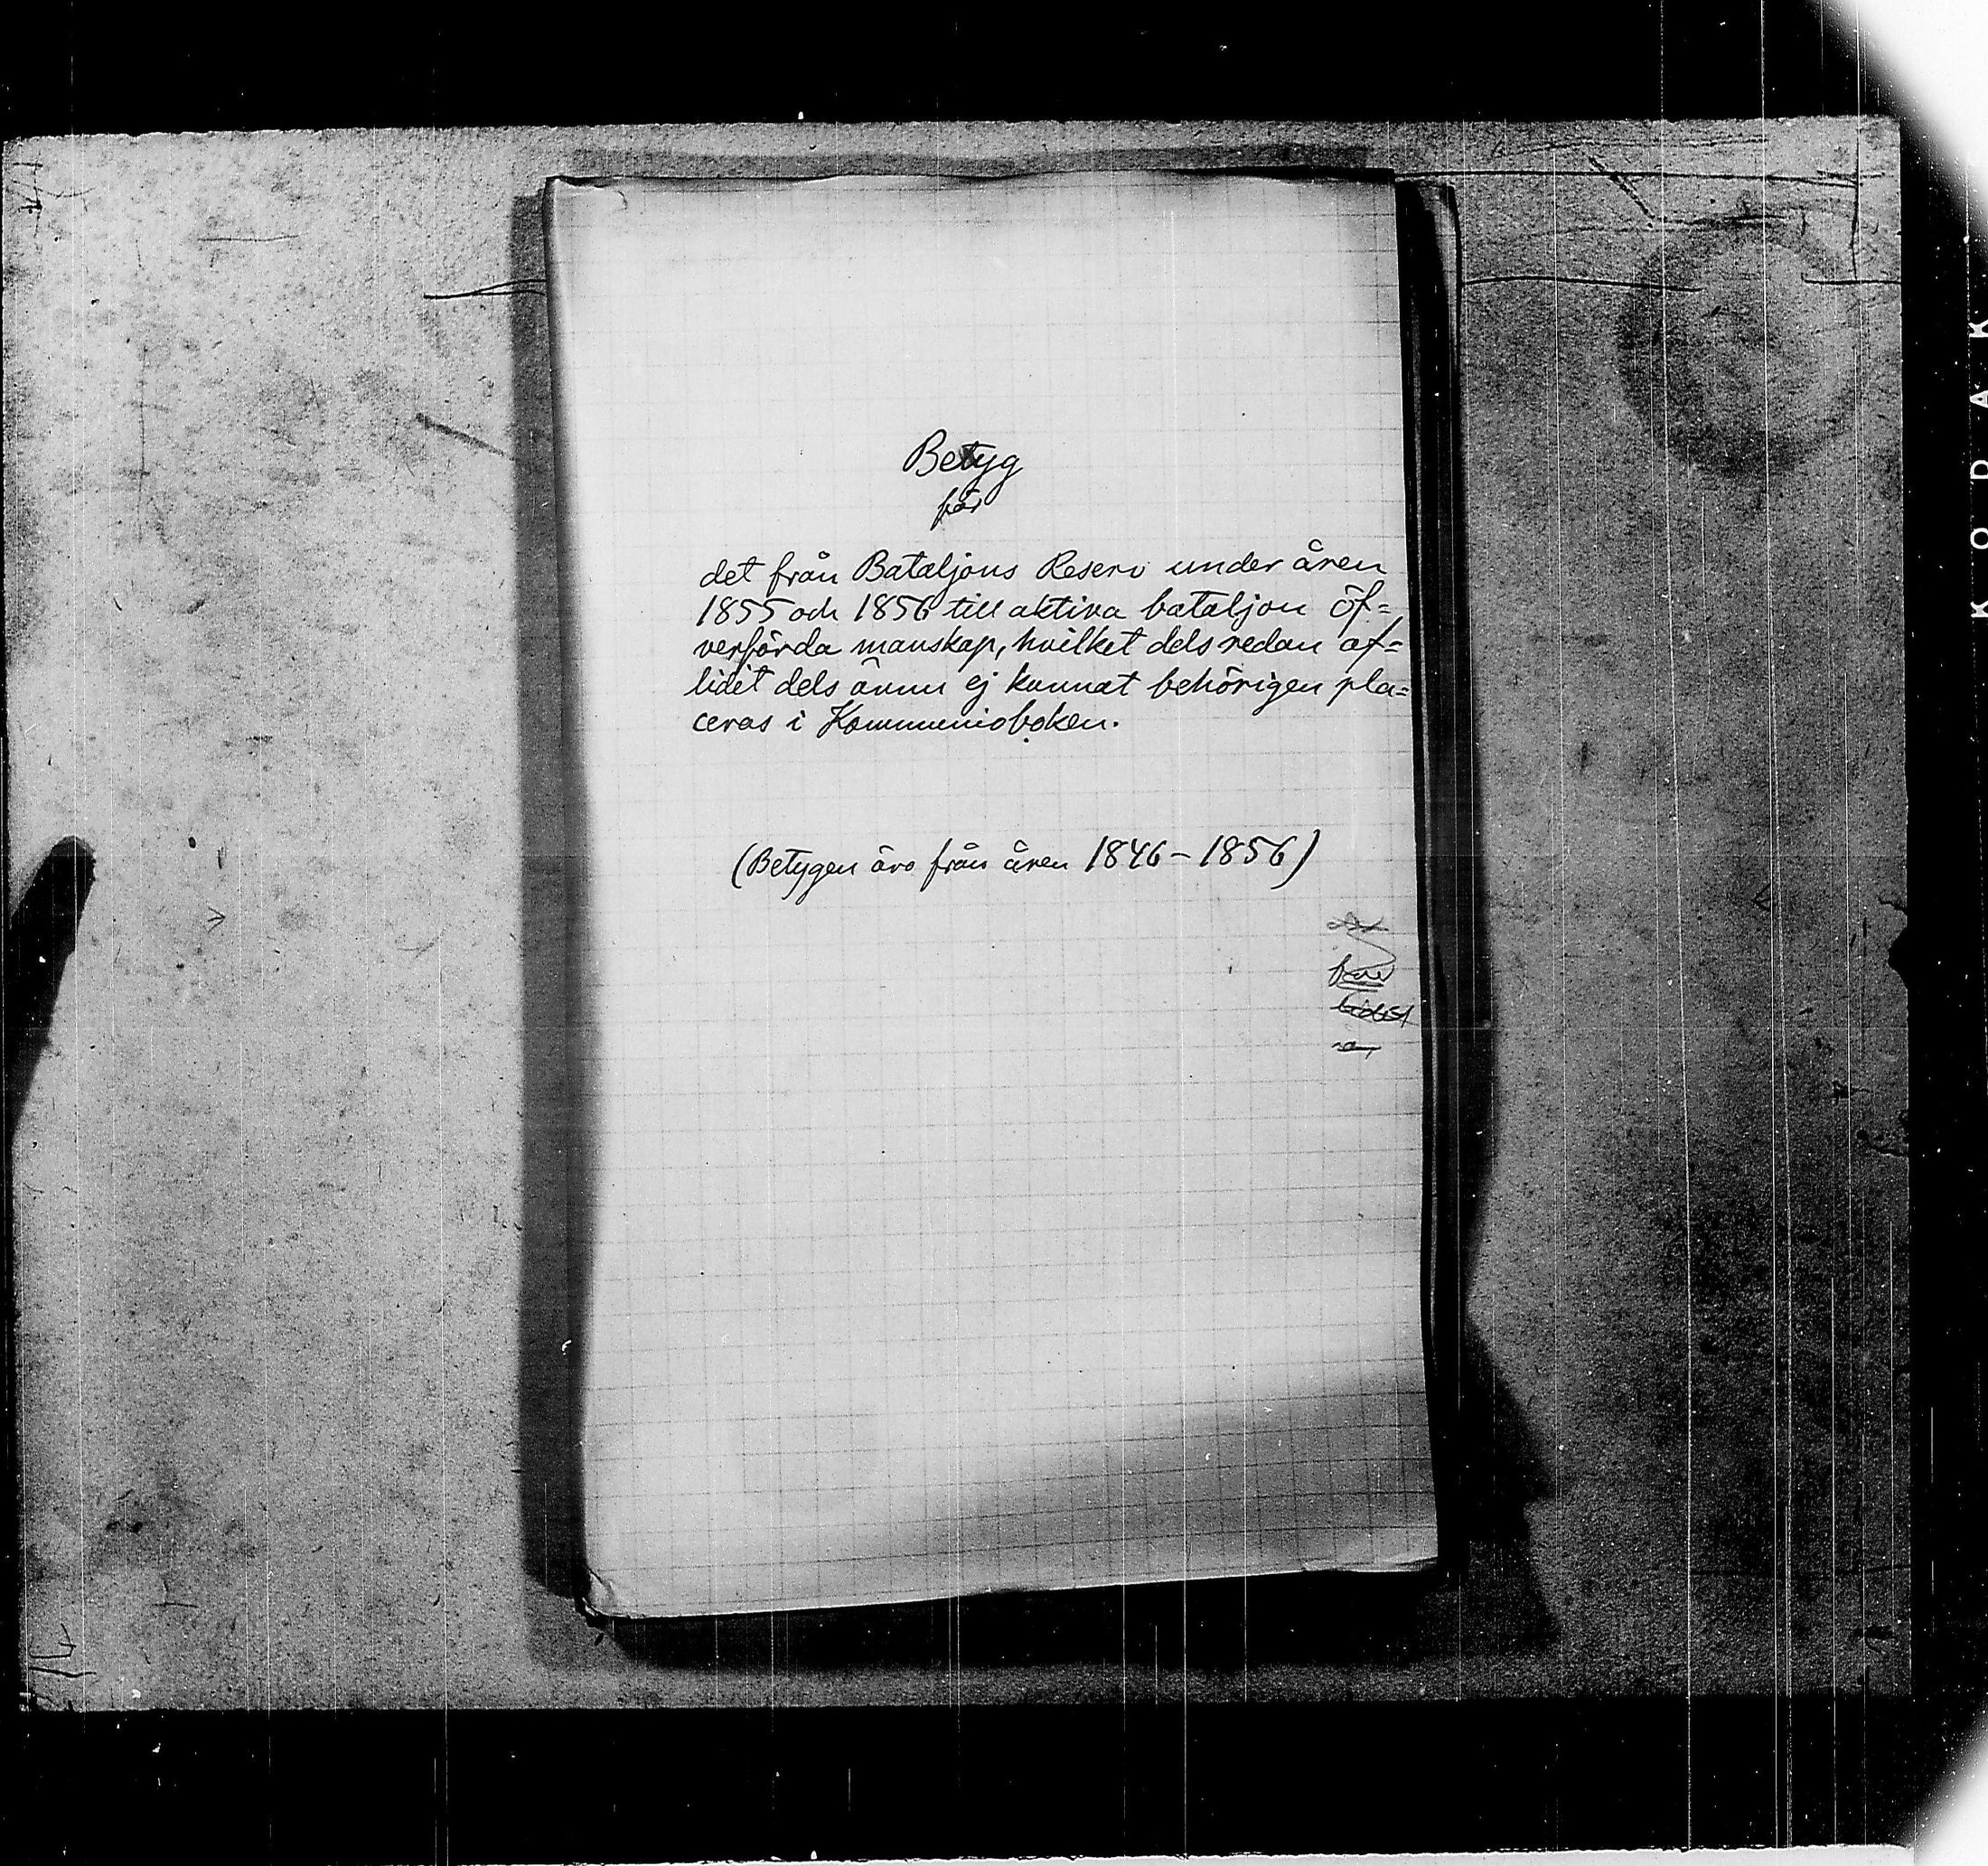 Betyg
för
det från Bataljons Reserv under åren
1855 och 1856 till aktiva bataljon öf=
verförda manskap, hvilket dels redan af=
lidit dels ännu ej kunnat behörigen pla=
ceras i Kommunioboken.
(Betygen äro från åren 1846-1856)
KODAK